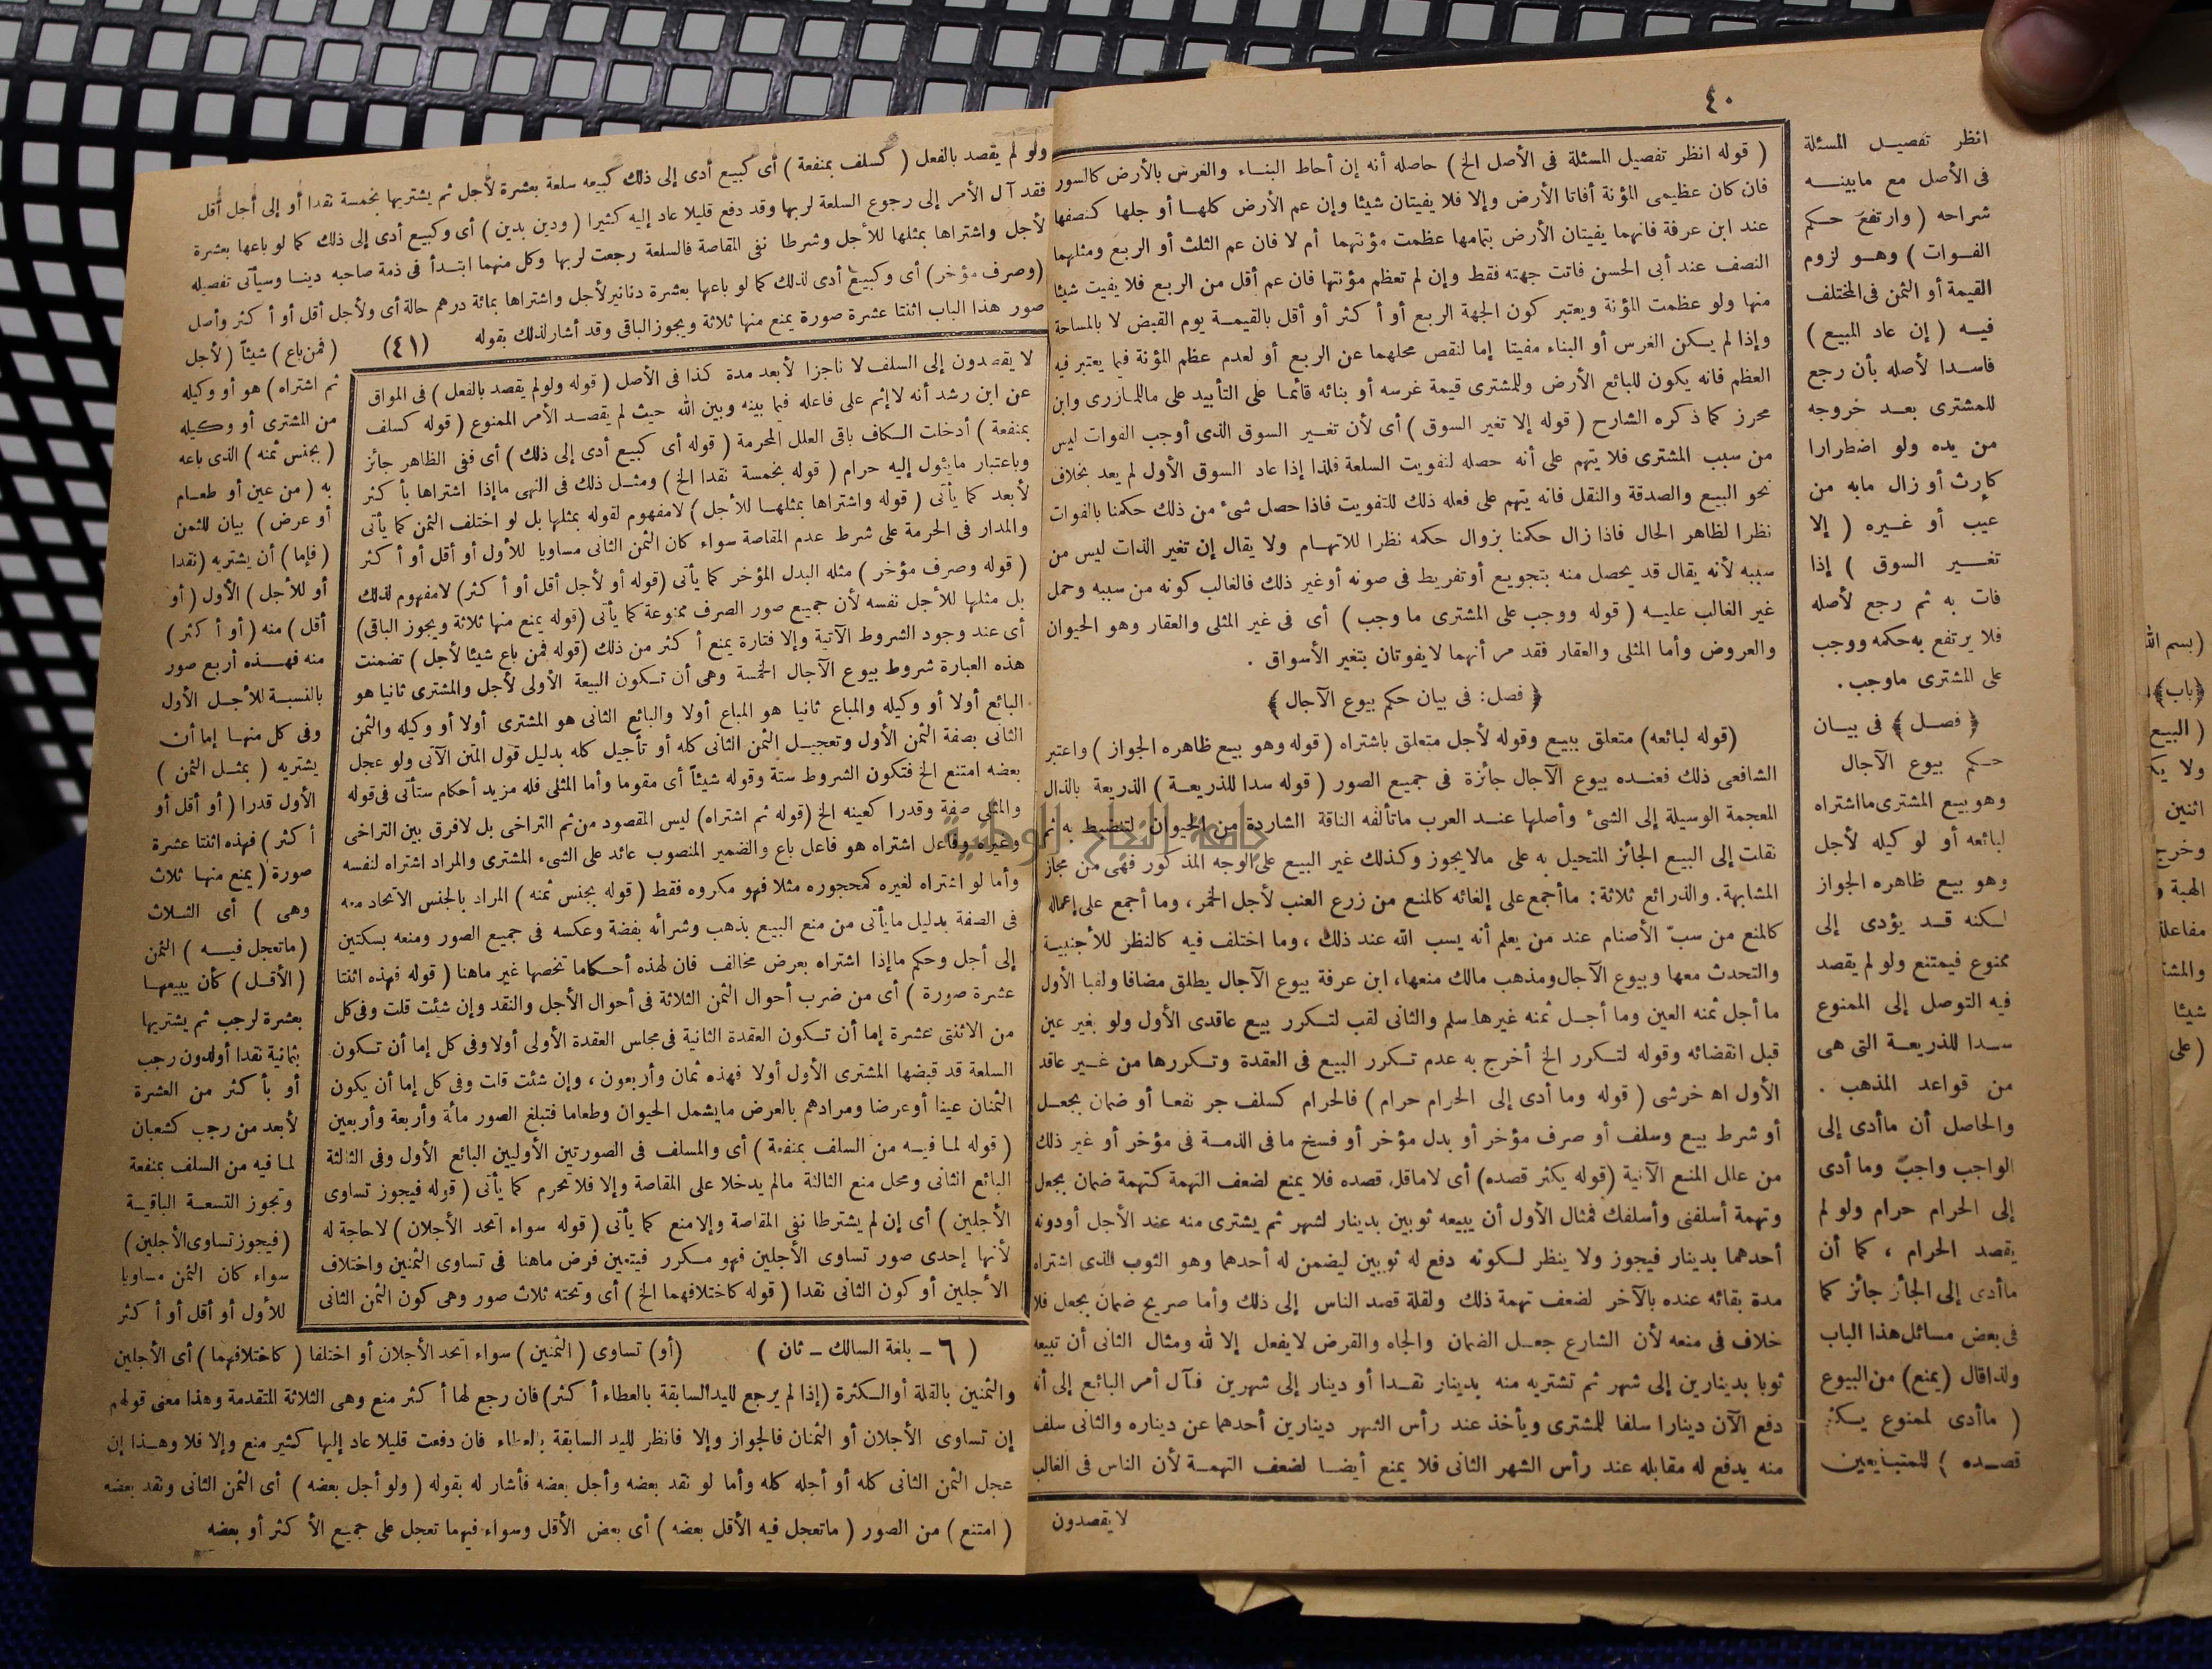 ٤٠
انظر تفصيل المسئلة
فى الأصل مع مابينه
شراحه ( وارتفع حكم
الفوات ) وهو لزوم
القيمة أو الثمن فى المختلف
فيه ( إن عاد المبيع )
فاسدا لأصله بأن رجع
للمشترى بعد خروجه
من يده ولو اضطرارا
كإرث أو زال مابه من
عيب أو غيره ( إلا
تغير السوق ) إذا
فات به ثم رجع لأصله
فلا يرتفع به حكمه ووجب
على المشترى ماوجب .
﴿ فصل ﴾ فى بيان
حكم بيوع الآجال
وهو بيع المشترى مااشتراه
لبائعه أو لوكيله لأجل
وهو بيع ظاهره الجواز
لكنه قد يؤدى إلى
ممنوع فيمتنع ولو لم يقصد
فيه التوصل إلى الممنوع
سدا للذريعة التى هى
من قواعد المذهب .
والحاصل أن ماأدى إلى
الواجب واجب وما أدى
إلى الحرام حرام ولو لم
يقصد الحرام ، كما أن
ماأدى إلى الجائز جائز كما
فى بعض مسائل هذا الباب
ولذا قال (يمنع) من البيوع
( ماأدى لممنوع يكثر
قصده ) للمتبايعين
( قوله انظر تفصيل المسئلة فى الأصل الخ ) حاصله أنه إن أحاط البناء والغرس بالأرض كالسور
فان كان عظيمى المؤنة أفاتا الأرض وإلا فلا يفيتان شيئا وإن عم الأرض كلها أو جلها كنصفها
عند ابن عرفة فانهما يفيتان الأرض بتمامها عظمت مؤنتهما أم لا فان عم الثلث أو الربع ومثلهما
النصف عند أبى الحسن فاتت جهته فقط وإن لم تعظم مؤنتها فان عم أقل من الربع فلا يفيت شيئا
منها ولو عظمت المؤنة ويعتبر كون الجهة الربع أو أكثر أو أقل بالقيمة يوم القبض لا بالمساحة
وإذا لم يكن الغرس أو البناء مفيتا إما لنقص محلهما عن الربع أو لعدم عظم المؤنة فيما يعتبر فيه
العظم فانه يكون للبائع الأرض وللمشترى قيمة غرسه أو بنائه قائما على التأبيد على ماللمازرى وابن
محرز كما ذكره الشارح ( قوله إلا تغير السوق ) أى لأن تغير السوق الذى أوجب الفوات ليس
من سبب المشترى فلا يتهم على أنه حصله لتفويت السلعة فلذا إذا عاد السوق الأول لم يعد بخلاف
نحو البيع والصدقة والنقل فانه يتهم على فعله ذلك للتفويت فاذا حصل شىء من ذلك حكمنا بالفوات
نظرا لظاهر الحال فاذا زال حكمنا بزوال حكمه نظرا للاتهام ولا يقال إن تغير الذات ليس من
سببه لأنه يقال قد يحصل منه بتجويع أو تفريط فى صونه أو غير ذلك فالغالب كونه من سببه وحمل
غير الغالب عليه ( قوله ووجب على المشترى ما وجب ) أى فى غير المثلى والعقار وهو الحيوان
والعروض وأما المثلى والعقار فقد مر أنهما لا يفوتان بتغير الأسواق .
﴿ فصل: فى بيان حكم بيوع الآجال ﴾
(قوله لبائعه) متعلق ببيع وقوله لأجل متعلق باشتراه ( قوله وهو بيع ظاهره الجواز ) واعتبر
الشافعى ذلك فعنده بيوع الآجال جائزة فى جميع الصور ( قوله سدا للذريعة ) الذريعة بالذال
المعجمة الوسيلة إلى الشىء وأصلها عند العرب ماتألفه الناقة الشاردة من الحيوان لتنضبط به ثم
نقلت إلى البيع الجائز المتحيل به على مالا يجوز وكذلك غير البيع على الوجه المذكور فهى من مجاز
المشابهة. والذرائع ثلاثة: ماأجمع على إلغائه كالمنع من زرع العنب لأجل الخمر ، وما أجمع على إعماله
كالمنع من سبّ الأصنام عند من يعلم أنه يسب الله عند ذلك ، وما اختلف فيه كالنظر للأجنبية
والتحدث معها وبيوع الآجال ومذهب مالك منعها، ابن عرفة بيوع الآجال يطلق مضافا ولقبا الأول
ما أجل ثمنه العين وما أجل ثمنه غيرها سلم والثانى لقب لتكرر بيع عاقدى الأول ولو بغير عين
قبل انقضائه وقوله لتكرر الخ أخرج به عدم تكرر البيع فى العقدة وتكررها من غير عاقد
الأول اه خرشى ( قوله وما أدى إلى الحرام حرام ) فالحرام كسلف جر نفعا أو ضمان بجعل
أو شرط بيع وسلف أو صرف مؤخر أو بدل مؤخر أو فسخ ما فى الذمة فى مؤخر أو غير ذلك
من علل المنع الآتية (قوله يكثر قصده) أى لا ماقل قصده فلا يمنع لضعف التهمة كتهمة ضمان بجعل
وتهمة أسلفنى وأسلفك فمثال الأول أن يبيعه ثوبين بدينار لشهر ثم يشترى منه عند الأجل أودونه
أحدهما بدينار فيجوز ولا ينظر لكونه دفع له ثوبين ليضمن له أحدهما وهو الثوب الذى اشتراه
مدة بقائه عنده بالآخر لضعف تهمة ذلك ولقلة قصد الناس إلى ذلك وأما صريح ضمان بجعل فلا
خلاف فى منعه لأن الشارع جعل الضمان والجاه والقرض لايفعل إلا لله ومثال الثانى أن تبيعه
ثوبا بدينارين إلى شهر ثم تشتريه منه بدينار نقدا أو دينار إلى شهرين فآل أمر البائع إلى أنه
دفع الآن دينارا سلفا للمشترى ويأخذ عند رأس الشهر دينارين أحدهما عن ديناره والثانى سلف
منه يدفع له مقابله عند رأس الشهر الثانى فلا يمنع أيضا لضعف التهمة لأن الناس فى الغالب
لايقصدون
ولو لم يقصد بالفعل ( كسلف بمنفعة ) أى كبيع أدى إلى ذلك كبيعه سلعة بعشرة لأجل ثم يشتريها بخمسة نقدا أو إلى أجل أقل
فقد آل الأمر إلى رجوع السلعة لربها وقد دفع قليلا عاد إليه كثيرا ( ودين بدين ) أى وكبيع أدى إلى ذلك كما لو باعها بعشرة
لأجل واشتراها بمثلها للأجل وشرطا نفى المقاصة فالسلعة رجعت لربها وكل منهما ابتدأ فى ذمة صاحبه دينا وسيأتى تفصيله
(وصرف مؤخر) أى وكبيع أدى لذلك كما لو باعها بعشرة دنانير لأجل واشتراها بمائة درهم حالة أى ولأجل أقل أو أكثر وأصل
صور هذا الباب اثنتا عشرة صورة يمنع منها ثلاثة ويجوز الباقى وقد أشار لذلك بقوله
(٤١)
( فمن باع ) شيئاً ( لأجل
ثم اشتراه ) هو أو وكيله
من المشترى أو وكيله
( بجنس ثمنه ) الذى باعه
به ( من عين أو طعام
أو عرض ) بيان للثمن
( فإما ) أن يشتريه (نقدا
أو للأجل ) الأول ( أو
أقل ) منه ( أو أكثر )
منه فهذه أربع صور
بالنسبة للأجل الأول
وفى كل منها إما أن
يشتريه ( بمثل الثمن )
الأول قدرا ( أو أقل أو
أكثر ) فهذه اثنتا عشرة
صورة ( يمنع منها ثلاث
وهى ) أى الثلاث
( ماتعجل فيه ) الثمن
( الأقل ) كأن يبيعها
بعشرة لرجب ثم يشتريها
بثمانية نقدا أو لدون رجب
أو بأكثر من العشرة
لأبعد من رجب كشعبان
لما فيه من السلف بمنفعة
وتجوز التسعة الباقية
(فيجوز تساوى الأجلين)
سواء كان الثمن مساويا
للأول أو أقل أو أكثر
لا يقصدون إلى السلف لا ناجزا لأبعد مدة كذا فى الأصل ( قوله ولو لم يقصد بالفعل ) فى المواق
عن ابن رشد أنه لا إثم على فاعله فيما بينه وبين الله حيث لم يقصد الأمر الممنوع ( قوله كسلف
بمنفعة ) أدخلت الكاف باقى العلل المحرمة ( قوله أى كبيع أدى إلى ذلك ) أى ففى الظاهر جائز
وباعتبار مايئول إليه حرام ( قوله بخمسة نقدا الخ ) ومثل ذلك فى النهى ماإذا اشتراها بأكثر
لأبعد كما يأتى ( قوله واشتراها بمثلها للأجل ) لامفهوم لقوله بمثلها بل لو اختلف الثمن كما يأتى
والمدار فى الحرمة على شرط عدم المقاصة سواء كان الثمن الثانى مساويا للأول أو أقل أو أكثر
( قوله وصرف مؤخر ) مثله البدل المؤخر كما يأتى (قوله أو لأجل أقل أو أكثر) لامفهوم لذلك
بل مثلها للأجل نفسه لأن جميع صور الصرف ممنوعة كما يأتى (قوله يمنع منها ثلاثة ويجوز الباقى)
أى عند وجود الشروط الآتية وإلا فتارة يمنع أكثر من ذلك (قوله فمن باع شيئا لأجل ) تضمنت
هذه العبارة شروط بيوع الآجال الخمسة وهى أن تكون البيعة الأولى لأجل والمشترى ثانيا هو
البائع أولا أو وكيله والمباع ثانيا هو المباع أولا والبائع الثانى هو المشترى أولا أو وكيله والثمن
الثانى بصفة الثمن الأول وتعجيل الثمن الثانى كله أو تأجيل كله بدليل قول المتن الآتى ولو عجل
بعضه امتنع الخ فتكون الشروط ستة وقوله شيئاً أى مقوما وأما المثلى فله مزيد أحكام ستأتى فى قوله
والمثلى صفة وقدرا كعينه الخ (قوله ثم اشتراه) ليس المقصود من ثم التراخى بل لافرق بين التراخى
وغيره وفاعل اشتراه هو فاعل باع والضمير المنصوب عائد على الشىء المشترى والمراد اشتراه لنفسه
وأما لو اشتراه لغيره كمحجوره مثلا فهو مكروه فقط ( قوله بجنس ثمنه ) المراد بالجنس الاتحاد معه
فى الصفة بدليل مايأتى من منع البيع بذهب وشرائه بفضة وعكسه فى جميع الصور ومنعه بسكتين
إلى أجل وحكم ماإذا اشتراه بعرض مخالف فان لهذه أحكاما تخصها غير ماهنا ( قوله فهذه اثنتا
عشرة صورة ) أى من ضرب أحوال الثمن الثلاثة فى أحوال الأجل والنقد وإن شئت قلت وفى كل
من الاثنتى عشرة إما أن تكون العقدة الثانية فى مجلس العقدة الأولى أولا وفى كل إما أن تكون
السلعة قد قبضها المشترى الأول أولا فهذه ثمان وأربعون ، وإن شئت قلت وفى كل إما أن يكون
الثمنان عينا أو عرضا ومرادهم بالعرض مايشمل الحيوان وطعاما فتبلغ الصور مائة وأربعة وأربعين
( قوله لما فيه من السلف بمنفعة ) أى والمسلف فى الصورتين الأوليين البائع الأول وفى الثالثة
البائع الثانى ومحل منع الثالثة مالم يدخلا على المقاصة وإلا فلا تحرم كما يأتى ( قوله فيجوز تساوى
الأجلين ) أى إن لم يشترطا نفى المقاصة وإلا منع كما يأتى ( قوله سواء اتحد الأجلان ) لاحاجة له
لأنها إحدى صور تساوى الأجلين فهو مكرر فيتعين فرض ماهنا فى تساوى الثمنين واختلاف
الأجلين أو كون الثانى نقدا ( قوله كاختلافهما الخ ) أى وتحته ثلاث صور وهى كون الثمن الثانى
( ٦ - بلغة السالك - ثان )
(أو) تساوى ( الثمنين ) سواء اتحد الأجلان أو اختلفا ( كاختلافهما ) أى الأجلين
والثمنين بالقلة أو الكثرة (إذا لم يرجع لليد السابقة بالعطاء أكثر) فان رجع لها أكثر منع وهى الثلاثة المتقدمة وهذا معنى قولهم
إن تساوى الأجلان أو الثمنان فالجواز وإلا فانظر لليد السابقة بالعطاء فان دفعت قليلا عاد إليها كثير منع وإلا فلا وهذا إن
عجل الثمن الثانى كله أو أجله كله وأما لو نقد بعضه وأجل بعضه فأشار له بقوله ( ولو أجل بعضه ) أى الثمن الثانى ونقد بعضه
( امتنع ) من الصور ( ماتعجل فيه الأقل بعضه ) أى بعض الأقل وسواء فيهما تعجل على جميع الأكثر أو بعضه
(بسم الله
﴿باب﴾
( البيع
اثنين
وخرج
مفاعلة
شيئا
( على
جامعة النجاح الوطنية